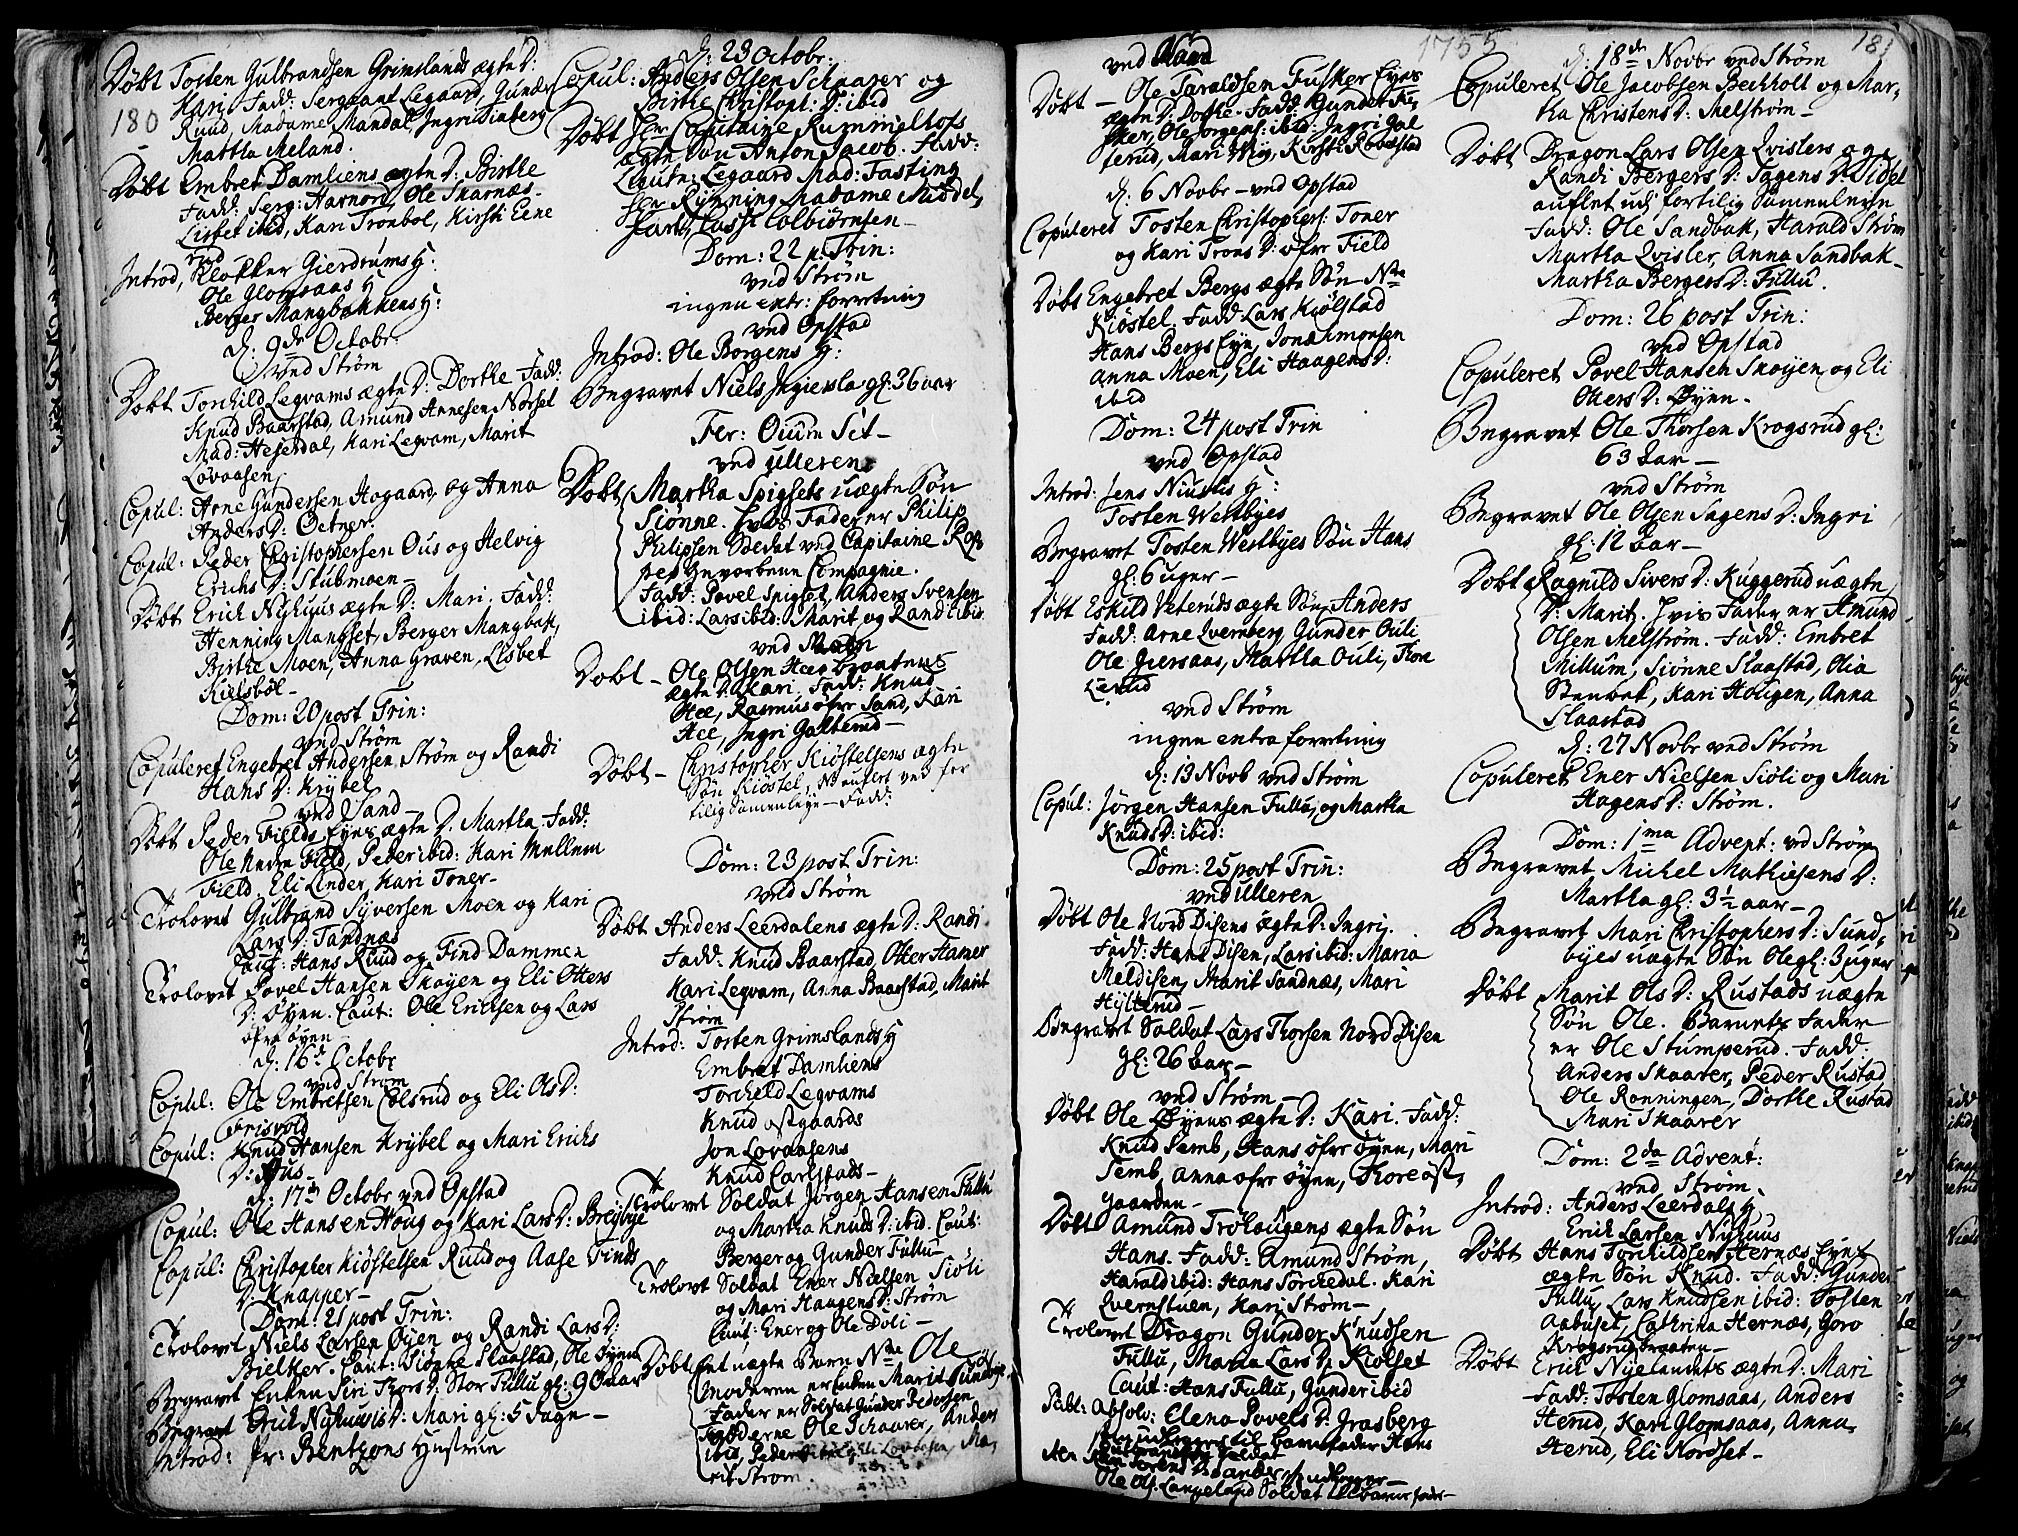 Döbt Tosten Gulbrandsen Grimslands ægte D:
Kari Fadd: Sergeant Legaard, Gunder
180
Ruud, Madame Mandal, Ingri
Martha Meland.
Döbt Embret Damliens ægte D: Birthe
Fadd: Serg: Harnord, Ole Skarnæs
Lisbet ibid, Kari Tronböl, Kirsti Eene
rud
Introd, Klokker Gierdrums H:
Ole Glomsaas H
Berger Mangbakkens H:
d: 9de Octobr:
ved Ström
Döbt Torchild Legvams ægte D: Dorthe Fadd:
Knud Baarstad, Amund Annesen Norset
Mad: Heserdal, Kari Legvam, Marit
Lövaasen
Copul: Arne Gundersen Aagaard, og Anna
Anders D: Oetner.
Copul: Peder Christophersen Ous og Helvig
Erichs D: Skubmoen
Döbt Erich Nyhuus ægte D: Mari. Fadd:
Henning Mangset, Berger Mangbak,
Birthe Moen, Anna Graven, Lisbet
Kielsböl
Dom: 20 post Trin:
ved Ström
Copuleret Engebret Andersen Ström og Randi
Hans D: Krybel
ved Sand
Döbt Peder Fields Eyes ægte D. Martha. Fadd:
Ole Nedre Field, Peder ibid: Kari Mellem
Field, Eli Linder, Kari Toner
Trolovet Gulbrand Syversen Moen og Kari
Lars D: Sandnæs
Caut: Hans Ruud og Find Dammen
Trolovet Povel Hansen Skøyen og Eli Otters
D: Øyen. Caut: Ole Erichsen og Lars
öfre öyen
d: 16de Octobr
ved Ström
Copul: Ole Embretsen Colsrud og Eli Ols D:
Grisvold
Copul: Knud Hansen Krybel og Mari Erichs
D: Aus
d: 17de Octobr ved Opstad
Copul: Ole Hansen Houg og Kari Lars D: Breybye
Copul: Christopher Kiöstelsen Ruud og Aase Finds
D: Knapper
Dom: 21 post Trin:
Trolovet Niels Larsen Öyen og Randi Lars D:
Bielker. Caut: Siönne Slaastad, Ole Öyen
Begravet Enken Siri Thors D: Stor Fullu gl: 90 aar
Begravet Erich Nyhuus D: Mari gl: 5 Dage
Introd: Hr: Bentzons Hustrue
d: 23 Octobr.
Copul: Anders Olsen Schaarer og
Birthe Christoph: D: ibid
Döbt Hr Capitaine Rummelhofs
ægte Sön Anton Jacob. Fadd:
Lieutn: Legaard Mad: Fasting
Hr Rynning Madame Middel
fart, Lasse Colbiörnsen
Dom: 22 p. Trin:
ved Ström
ingen extr: forretning
ved Opstad
Introd: Ole Borgens H:
Begravet Niels Ingierslа gl: 36 aar
Fer: Oium Sct
ved Ulleren
Döbt Martha Spigsets uægte Sön
Siönne. Hvis Fader er Philip
Philipsen Soldat ved Capitaine
gevorbene Compagnie.
Fadd: Povel Spigset, Anders Svensen
ibid: Lars ibid: Marit og Randi ibid
ved Sand
Döbt Ole Olsen Hee Braatens
ægte D: Kari. Fadd: Knud
Hee, Rasmus öfre Sand, Kari
Hee, Ingri Galterud
Döbt Christopher Kiöstelsens ægte
Sön Kiöstel, auflet ved for
tilig Samenleye Fadd:
Dom: 23 post Trin:
ved Ström
Döbt Anders Leerdalens ægte D: Randi.
Fadd: Knud Baarstad, Otter Hamer
Kari Legvam, Anna Baarstad, Marit
Ström
Introd: Tosten Grimslands H
Embret Damliens
Torcheld Legvams
Knud ostgaards
Jon Lövaasens
Knud Carlstads
Trolovet Soldat Jörgen Hansen Fullu
og Martha Knuds D: ibid. Caut:
Berger og Gunder Fullu
Trolovet Soldat Ener Nielsen Siöli
og Mari Haagens D: Ström
Caut: Ener og Ole Döli
Döbt et uægte Barn Nne Ole
Moderen er Enken Marit Sundbye,
Fader er Soldat Gunder Pedersen
Fadderne Ole Schaarer, Anders
ibid, Peder ibid, Eli Lövaasen, Ma
rit Ström
1755
181
ved Sand
Döbt Ole Taraldsen Fusker Eyes
ægte D: Dorthe. Fadd: Gunder Fu
sker, Ole Jorgens: ibid: Ingri Gal
terud, Mari Myr, Kirsti
d: 6 Novbr ved Opstad
Copuleret Tosten Christophers: Toner
og Kari Trons D: öfre Field
Döbt Engebret Bergs ægte Sön Nne
Kiöstel. Fadd: Lars Kiölstad
Hans Bergs Eye, Jon Simonsen
Anna Moen, Eli Haagens D:
ibid
Dom: 24 post Trin
ved Opstad
Introd: Jens Niuslis H:
Tosten Westbyes
Begravet Tosten Westbyes Sön Hans
gl: 6 uger
Döbt Eskild Veteruds ægte Sön Anders
Fadd: Arne Qvernberg, Gunder Ouli
Ole Giersaas, Martha Ouli, Tore
Lierud
ved Ström
ingen extra forretning
d: 13 Novb ved Ström
Copul: Jörgen Hansen Fullu, og Martha
Knuds D: ibid:
Dom: 25 post Trin:
ved Ulleren
Döbt Ole Nord Disens ægte D: Ingri.
Fadd: Hans Disen, Lars ibid: Maria
Meldisen, Marit Sandnæs, Mari
Hylterud
Begravet Soldat Lars Thorsen Nord Disen
gl: 26 Aar
ved Ström
Döbt Ole Øyens ægte D: Kari. Fadd:
Knud Semb, Hans öfre öyen, Mari
Semb, Anna öfre öyen, Thore öst
gaarden
Döbt Amund Trölaugens ægte Sön
Hans. Fadd: Amund Ström,
Harald ibid: Hans Sorchedal. Kari
Qvernstuen, Kari Ström
Trolovet Dragon Gunder Knudsen
Fullu, Maria Lars D: Kiölset
Caut: Hans Fullu, Gunder ibid
Publ: Absolv: Elena Povels D: Grasberg
udlegger til barnefader Hans
Ole Ols. Langeland Soldat
d: 18de Novbr ved Ström
Copuleret Ole Jacobsen Bechholt og Mar
tha Christens D: Melström
Döbt Dragon Lars Olsen Qvislers og
Randi Bergers D: Sagens D: Sidsel
auflet ud fortilig Samenleye
Fadd: Ole Sandbak, Harald Ström
Martha Qvisler, Anna Sandbak
Martha Bergers D: Fullu.
Dom: 26 post Trin:
ved Opstad
Copuleret Povel Hansen Skoyen og Eli
Otters D: Øyen.
Begravet Ole Thorsen Krogsrud gl:
63 Aar
ved Ström
Begravet Ole Olsen Sagens D: Ingri
gl: 12 Aar
Döbt Ragnild Sivers D: Kuggerud uægte
D: Marit. Hvis Fader er Amund
Olsen Melström. Fadd: Embret
Millum, Siönne Slaastad, Olia
Stenbet, Kari Hougen, Anna
Slaastad
d: 27 Novbr ved Ström
Copuleret Ener Nielsen Siöli og Mari
Hagens D: Ström.
Dom: 1ma Advent: ved Ström
Begravet Michel Mathiesens D:
Martha gl: 3½ aar
Begravet Mari Christophers D: Sund
byes uægte Sön Ole gl: 3 uger
Döbt Marit Ols D: Rustads uægte
Sön Ole. Barnets Fader
er Ole Stumperud. Fadd:
Anders Skaarer, Peder Rustad
Ole Ronningen, Dorthe Rustad
Mari Skaarer
Dom: 2da Advent:
ved Ström
Introd: Anders Leerdals H
Erich Larsen Nyhuus
Döbt Hans Torchildsen Hernæs Eyes
ægte Sön Knud. Fadd: Gunder
Fullu, Lars Knudsen ibid: Tosten
Aabuset, Cathrina Hernæs, Goro
Krogsrudbraaten
Döbt Erich Nyelandts ægte D: Mari
Fadd: Tosten Glomsaas, Anders
Herud, Kari Glomsaas, Anna
Herud, Eli Nordset